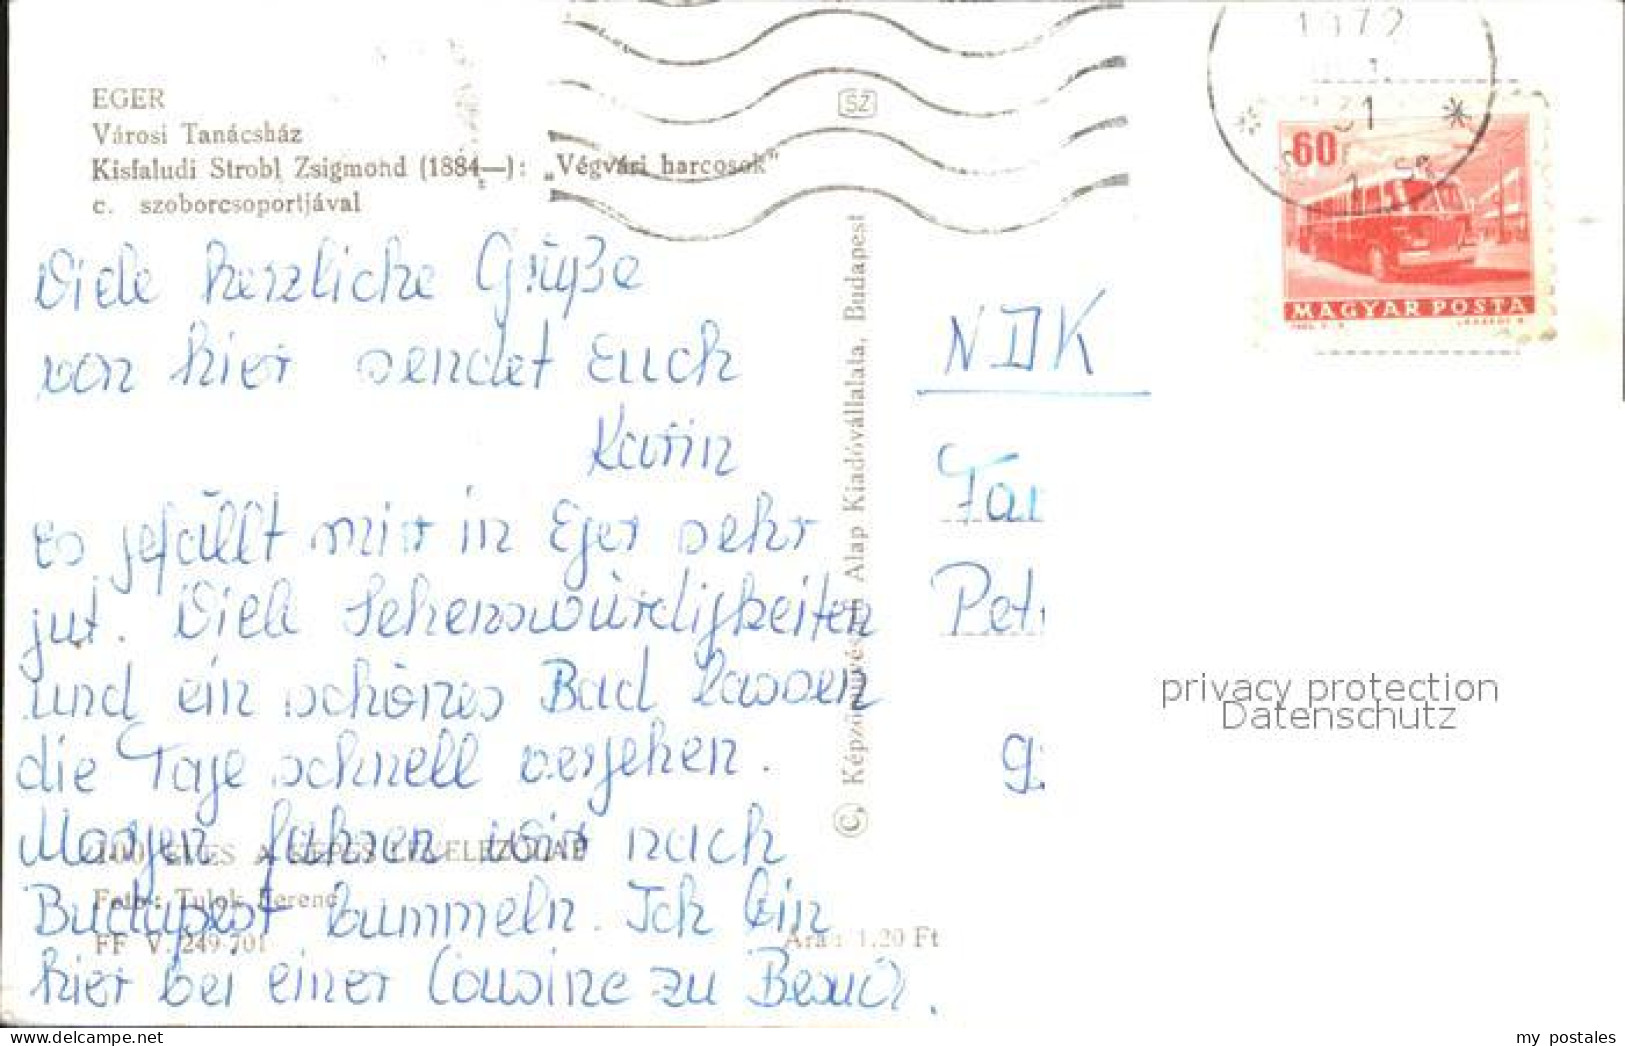 EGER
Városi Tanácsház
Kisfaludi Strobl Zsigmond (1884—): „Végvári harcosok"
c. szoborcsoportjával
SZ
1972
31
60 f
MAGYAR POSTA
Viele herzliche Grüße
von hier sendet Euch
Karin
Es gefällt mir in Eger sehr
gut. Viele Sehenswürdigkeiten
und ein schönes Bad lassen
die Tage schnell vergehen.
Morgen fahren wir nach
Budapest bummeln. Ich bin
hier bei einer Cousine zu Besuch.
100 ÉVES A KÉPES LEVELEZŐLAP
Foto: Tulok Ferenc
FF V. 249-701
Ára: 1,20 Ft
© Képzőművészeti Alap Kiadóvállalata, Budapest
NDK
Fa
Pet
privacy protection
Datenschutz
my postales